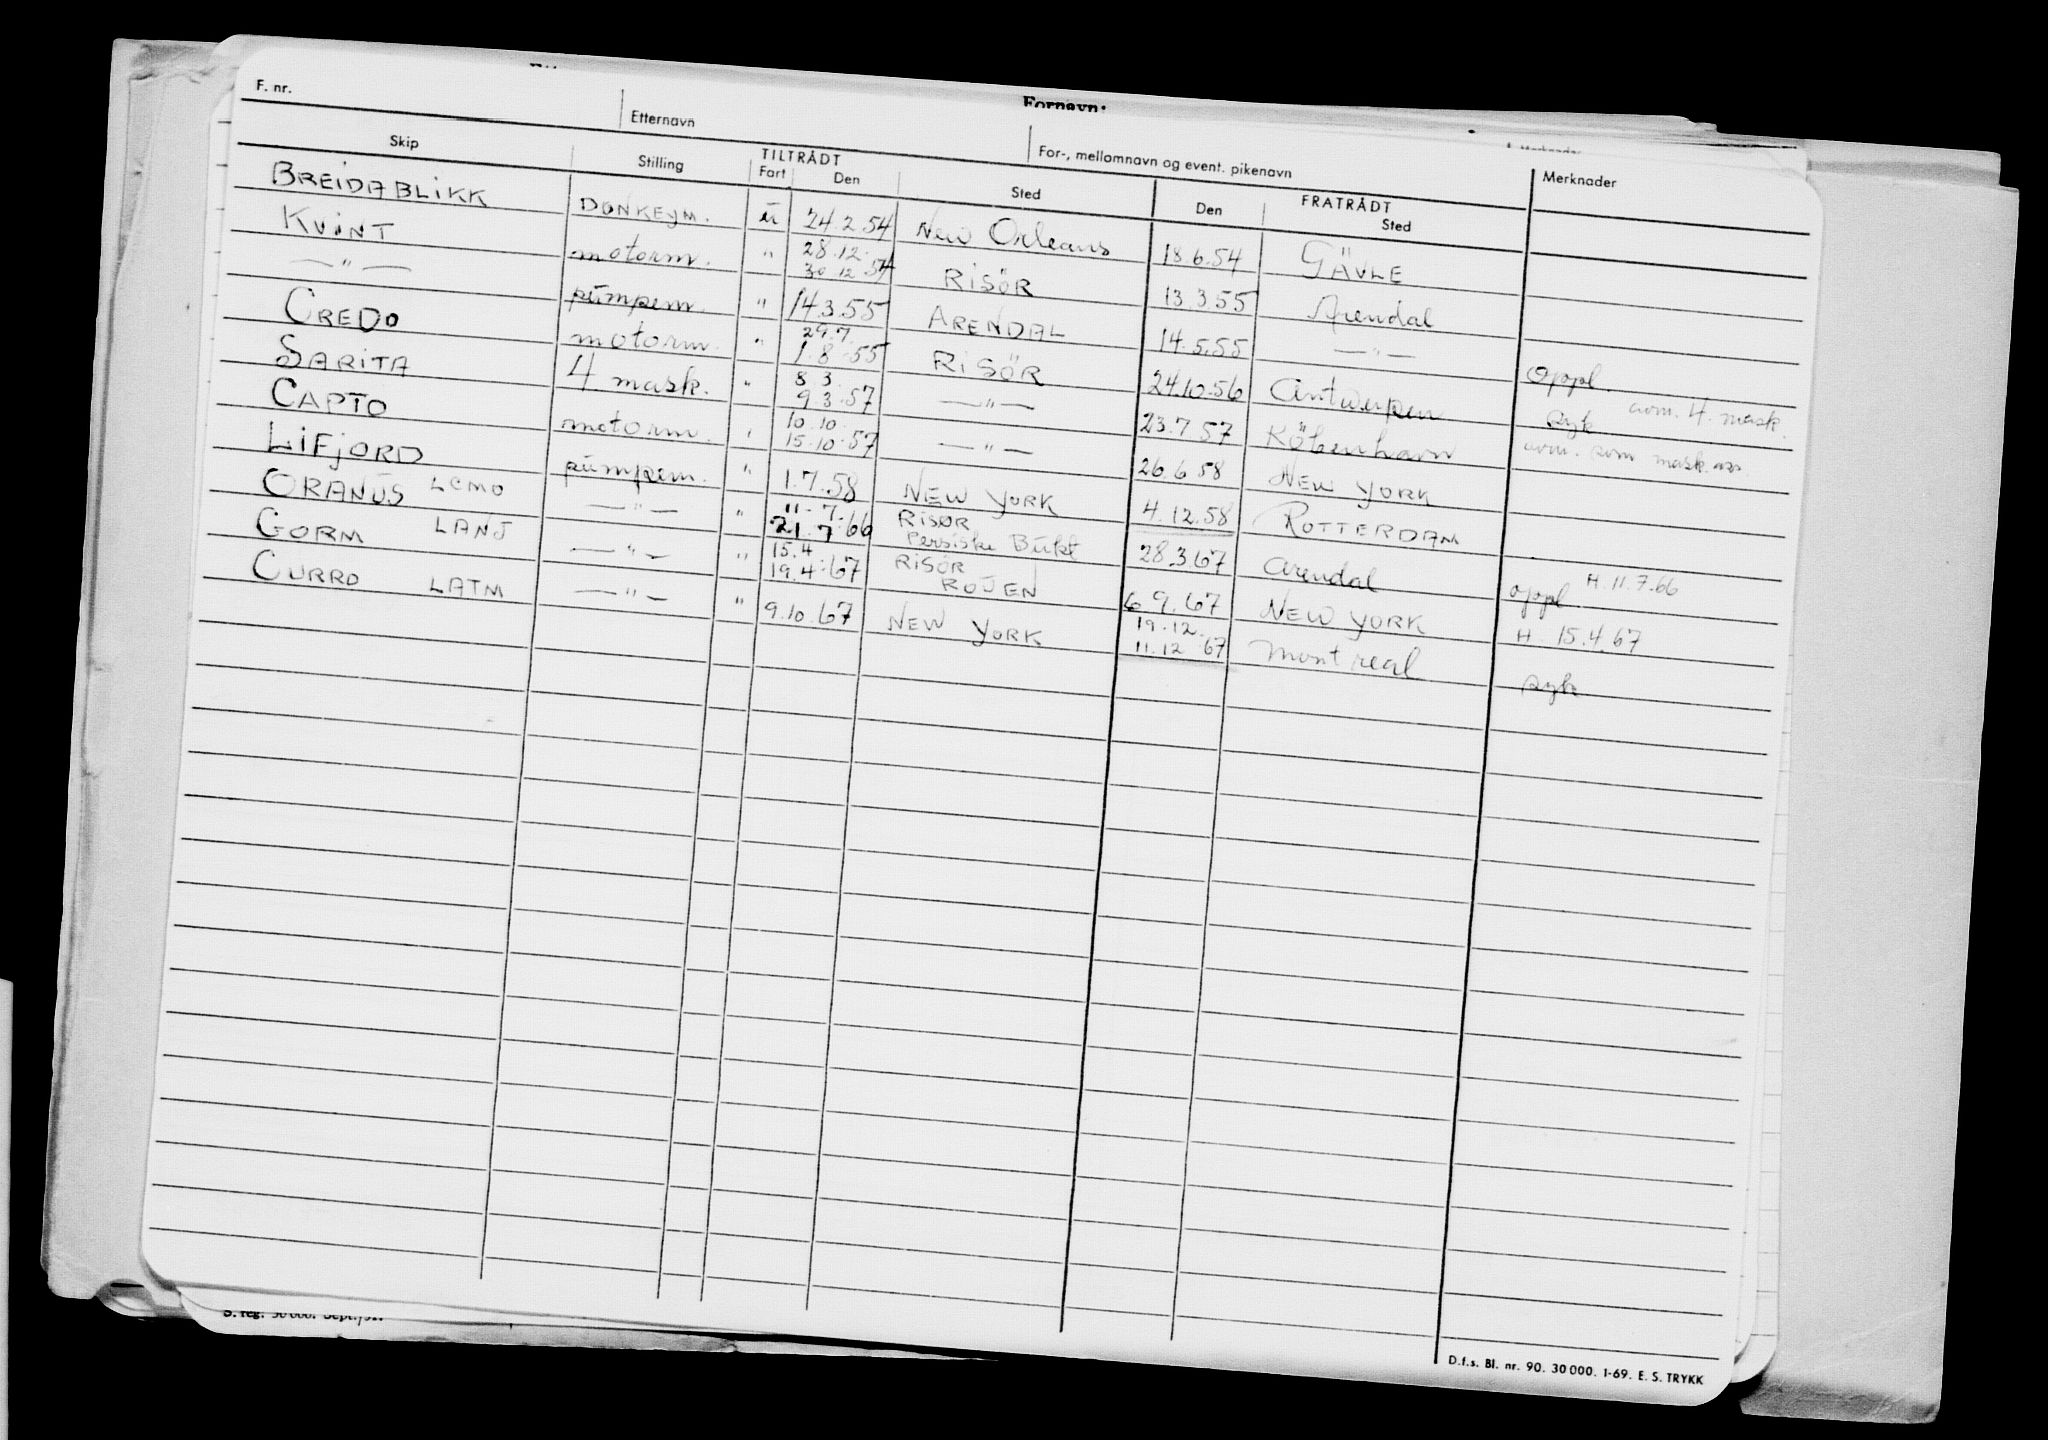 Fornavn:
F. nr.
Etternavn
For-, mellomnavn og event. pikenavn
Merknader
Skip Stilling TILTRÅDT Fart Den Sted FRATRÅDT Den Sted
BREIDABLIKK DONKEYM. u 24.2.54 New Orleans 18.6.54 GÄVLE
KVINT motorm. " 28.12. 30.12.54 RISÖR 13.3.55 Arendal
— " — pumpem. " 14.3.55 ARENDAL 14.5.55 — " — Oppl.
CREDO motorm. " 29.7. 1.8.55 RISÖR 24.10.56 Antwerpen avm. 4. mask.
SARITA 4 mask. " 8 3. 9.3.57 — " — 23.7 57 Köbenhavn syk avm. som mask.
CAPTO motorm. " 10.10. 15.10.57 — " — 26.6 58 NEW YORK
LIFJORD pumpem. " 1.7.58 NEW YORK 4.12.58 ROTTERDAM
ORANUS LCMO — " — " 11.7. 21.7.66 RISØR Persiske Bukt 28.3.67 Arendal oppl. H. 11.7.66
GORM LANJ — " — " 15.4 19.4.67 RISÖR ROJEN 6 9.67 NEW YORK H. 15.4.67
CURRO LATM — " — " 9.10.67 NEW YORK 19.12. 11.12.67 Montreal syk
S. reg. 30 000. Sept.
D.f.s. Bl. nr. 90. 30 000. 1-69. E. S. TRYKK